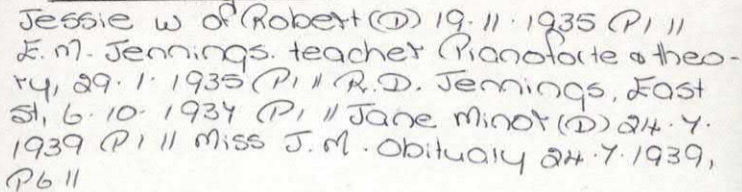 Jessie w of Robert (D) 19.11.1935 P1 //
E.M. Jennings. teacher Pianoforte & theo-
ry, 29.1.1935 P1 // R.D. Jennings, East
St, 6.10.1934 P1 // Jane Minor (D) 24.7.
1939 P1 // Miss J.M. Obituary 24.7.1939,
P6 //